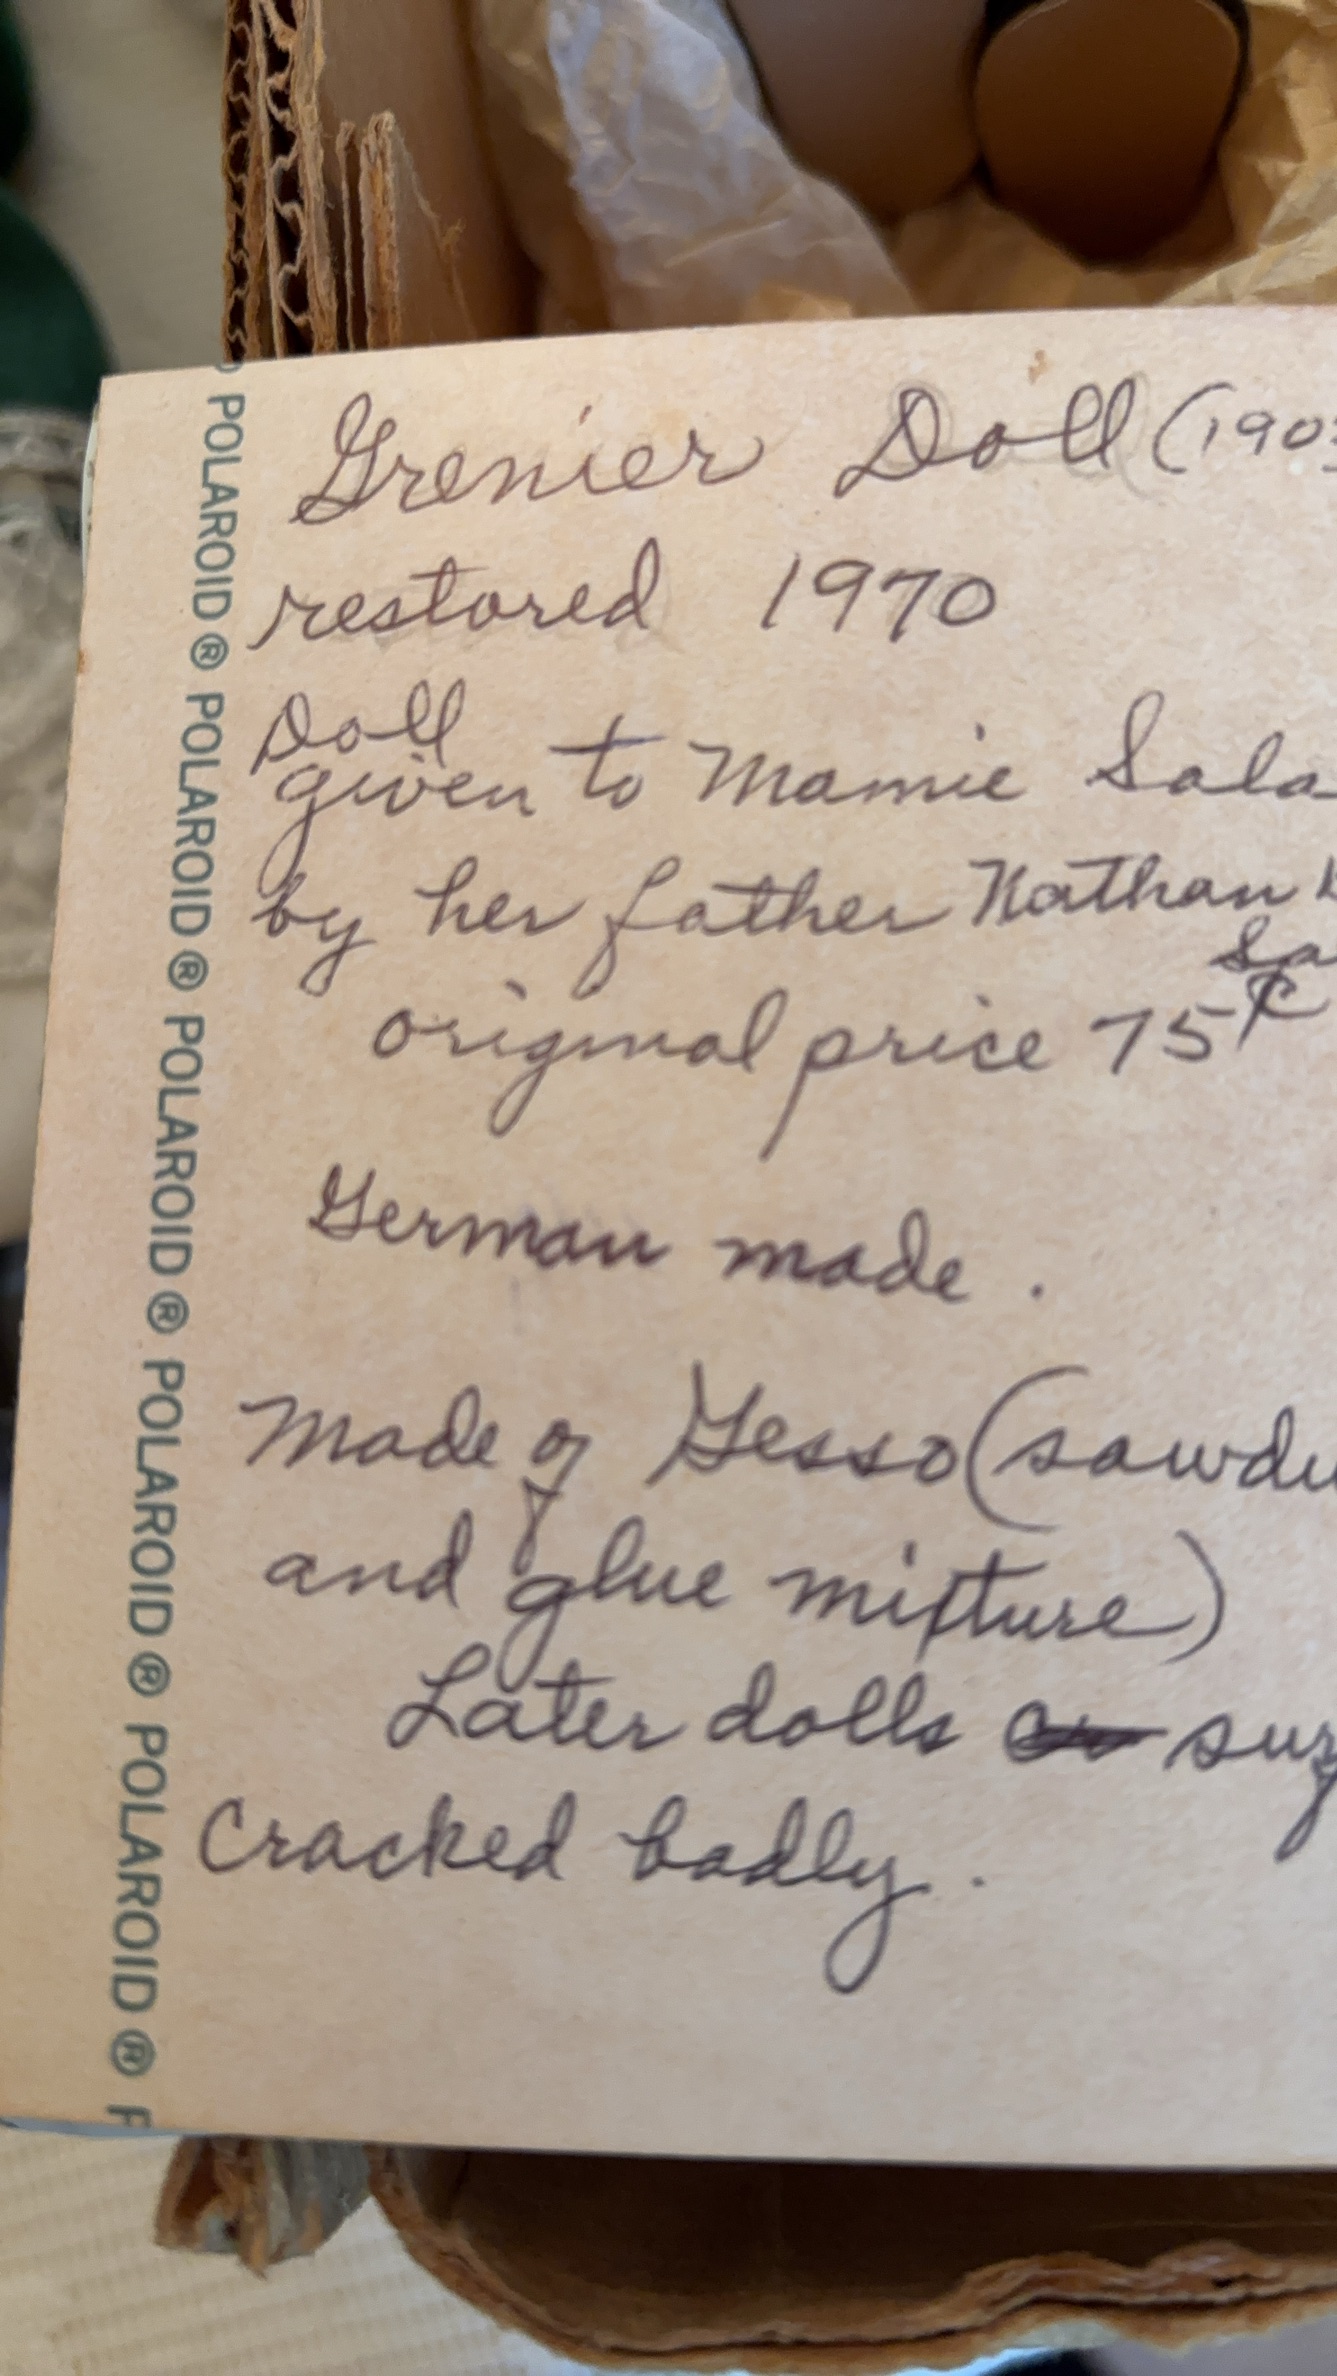 POLAROID ® POLAROID ® POLAROID ® POLAROID ® POLAROID ® POLAROID ® P
Grenier Doll (1903
restored 1970
Doll
given to Mamie Sala
by her father Nathan
Sa
original price 75¢
German made.
Made of Gesso (sawdu
and glue mixture)
Later dolls sur
Cracked badly.